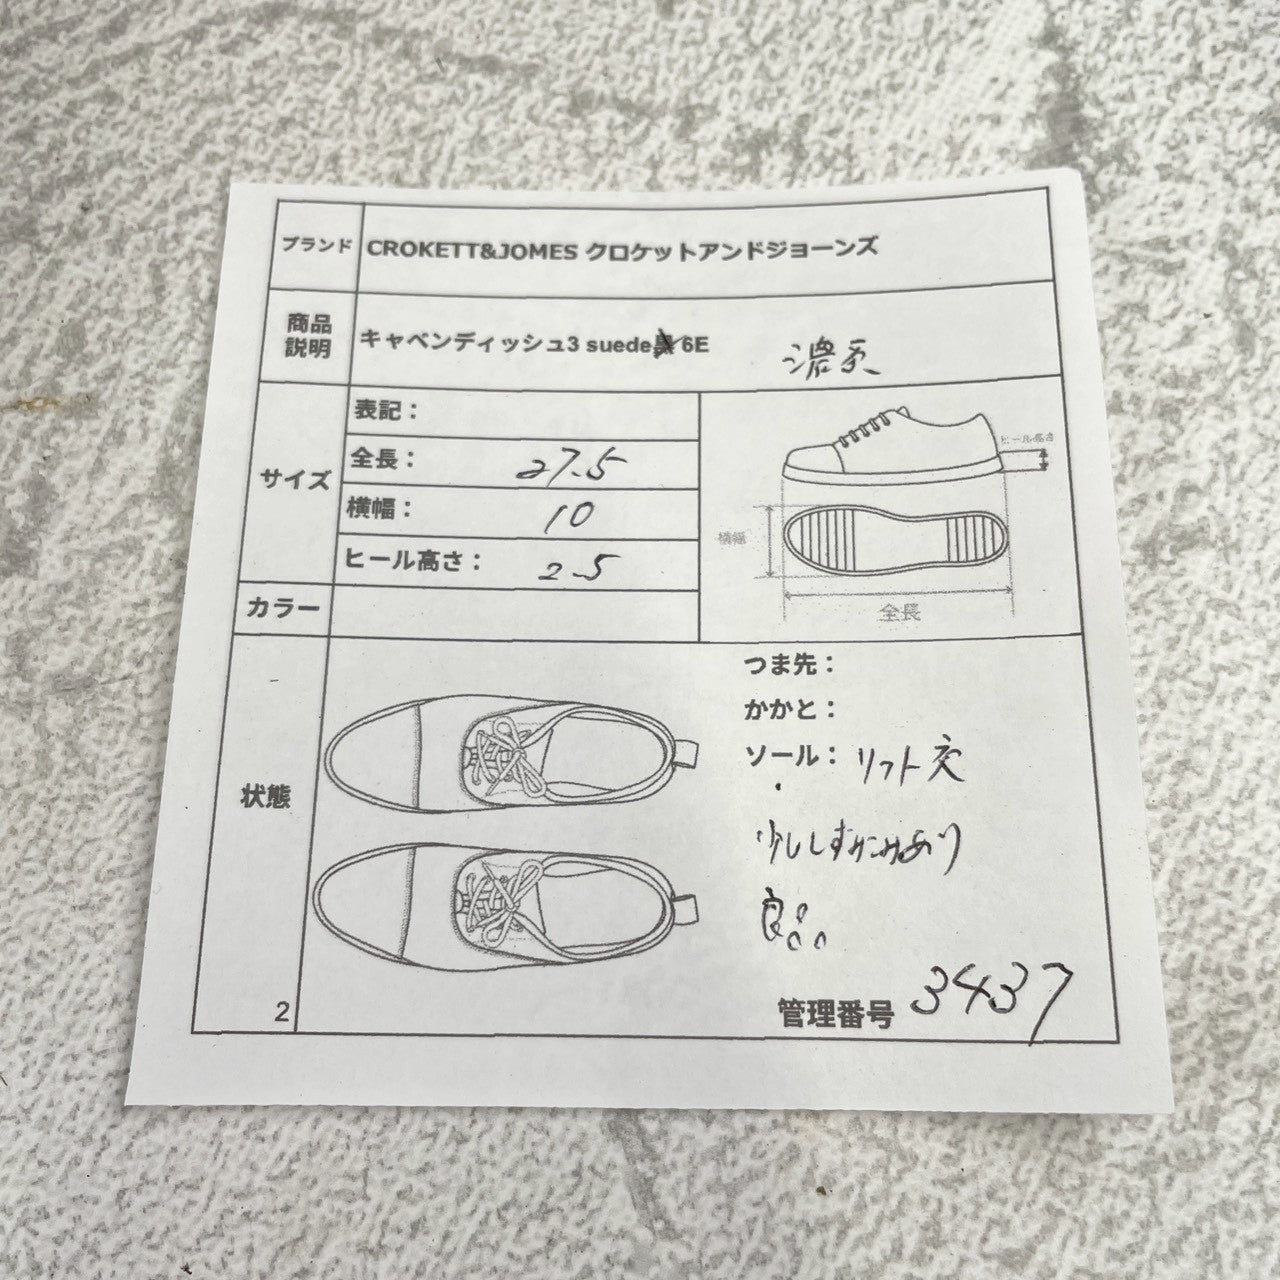 ブランド CROKETT&JOMES クロケットアンドジョーンズ
商品説明 キャベンディッシュ3 suede黒 6E 濃茶
サイズ
表記：
全長： 27.5
横幅： 10
ヒール高さ： 2.5
ヒール高さ
横幅
全長
カラー
状態
つま先：
かかと：
ソール： リフト交
少しあり
良品
2
管理番号 3437